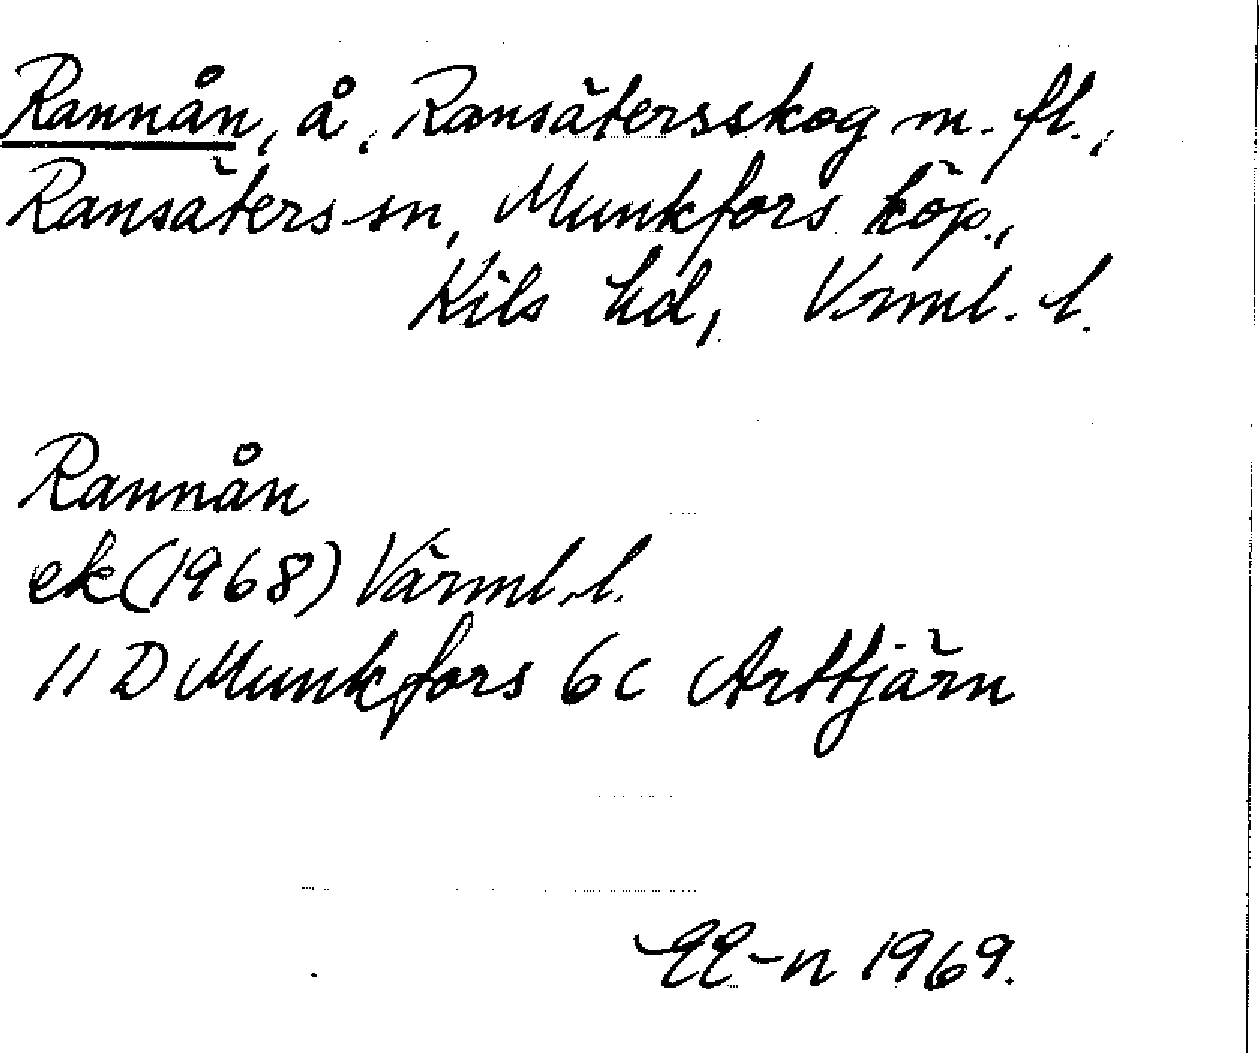 Rannån, å, Ransätersskog m. fl.,
Ransäters sn, Munkfors köp.,
Kils hd, Vrml. l.
Rannån
ek (1968) Värml. l.
11 D Munkfors 6 c Arttjärn
EE-n 1969.